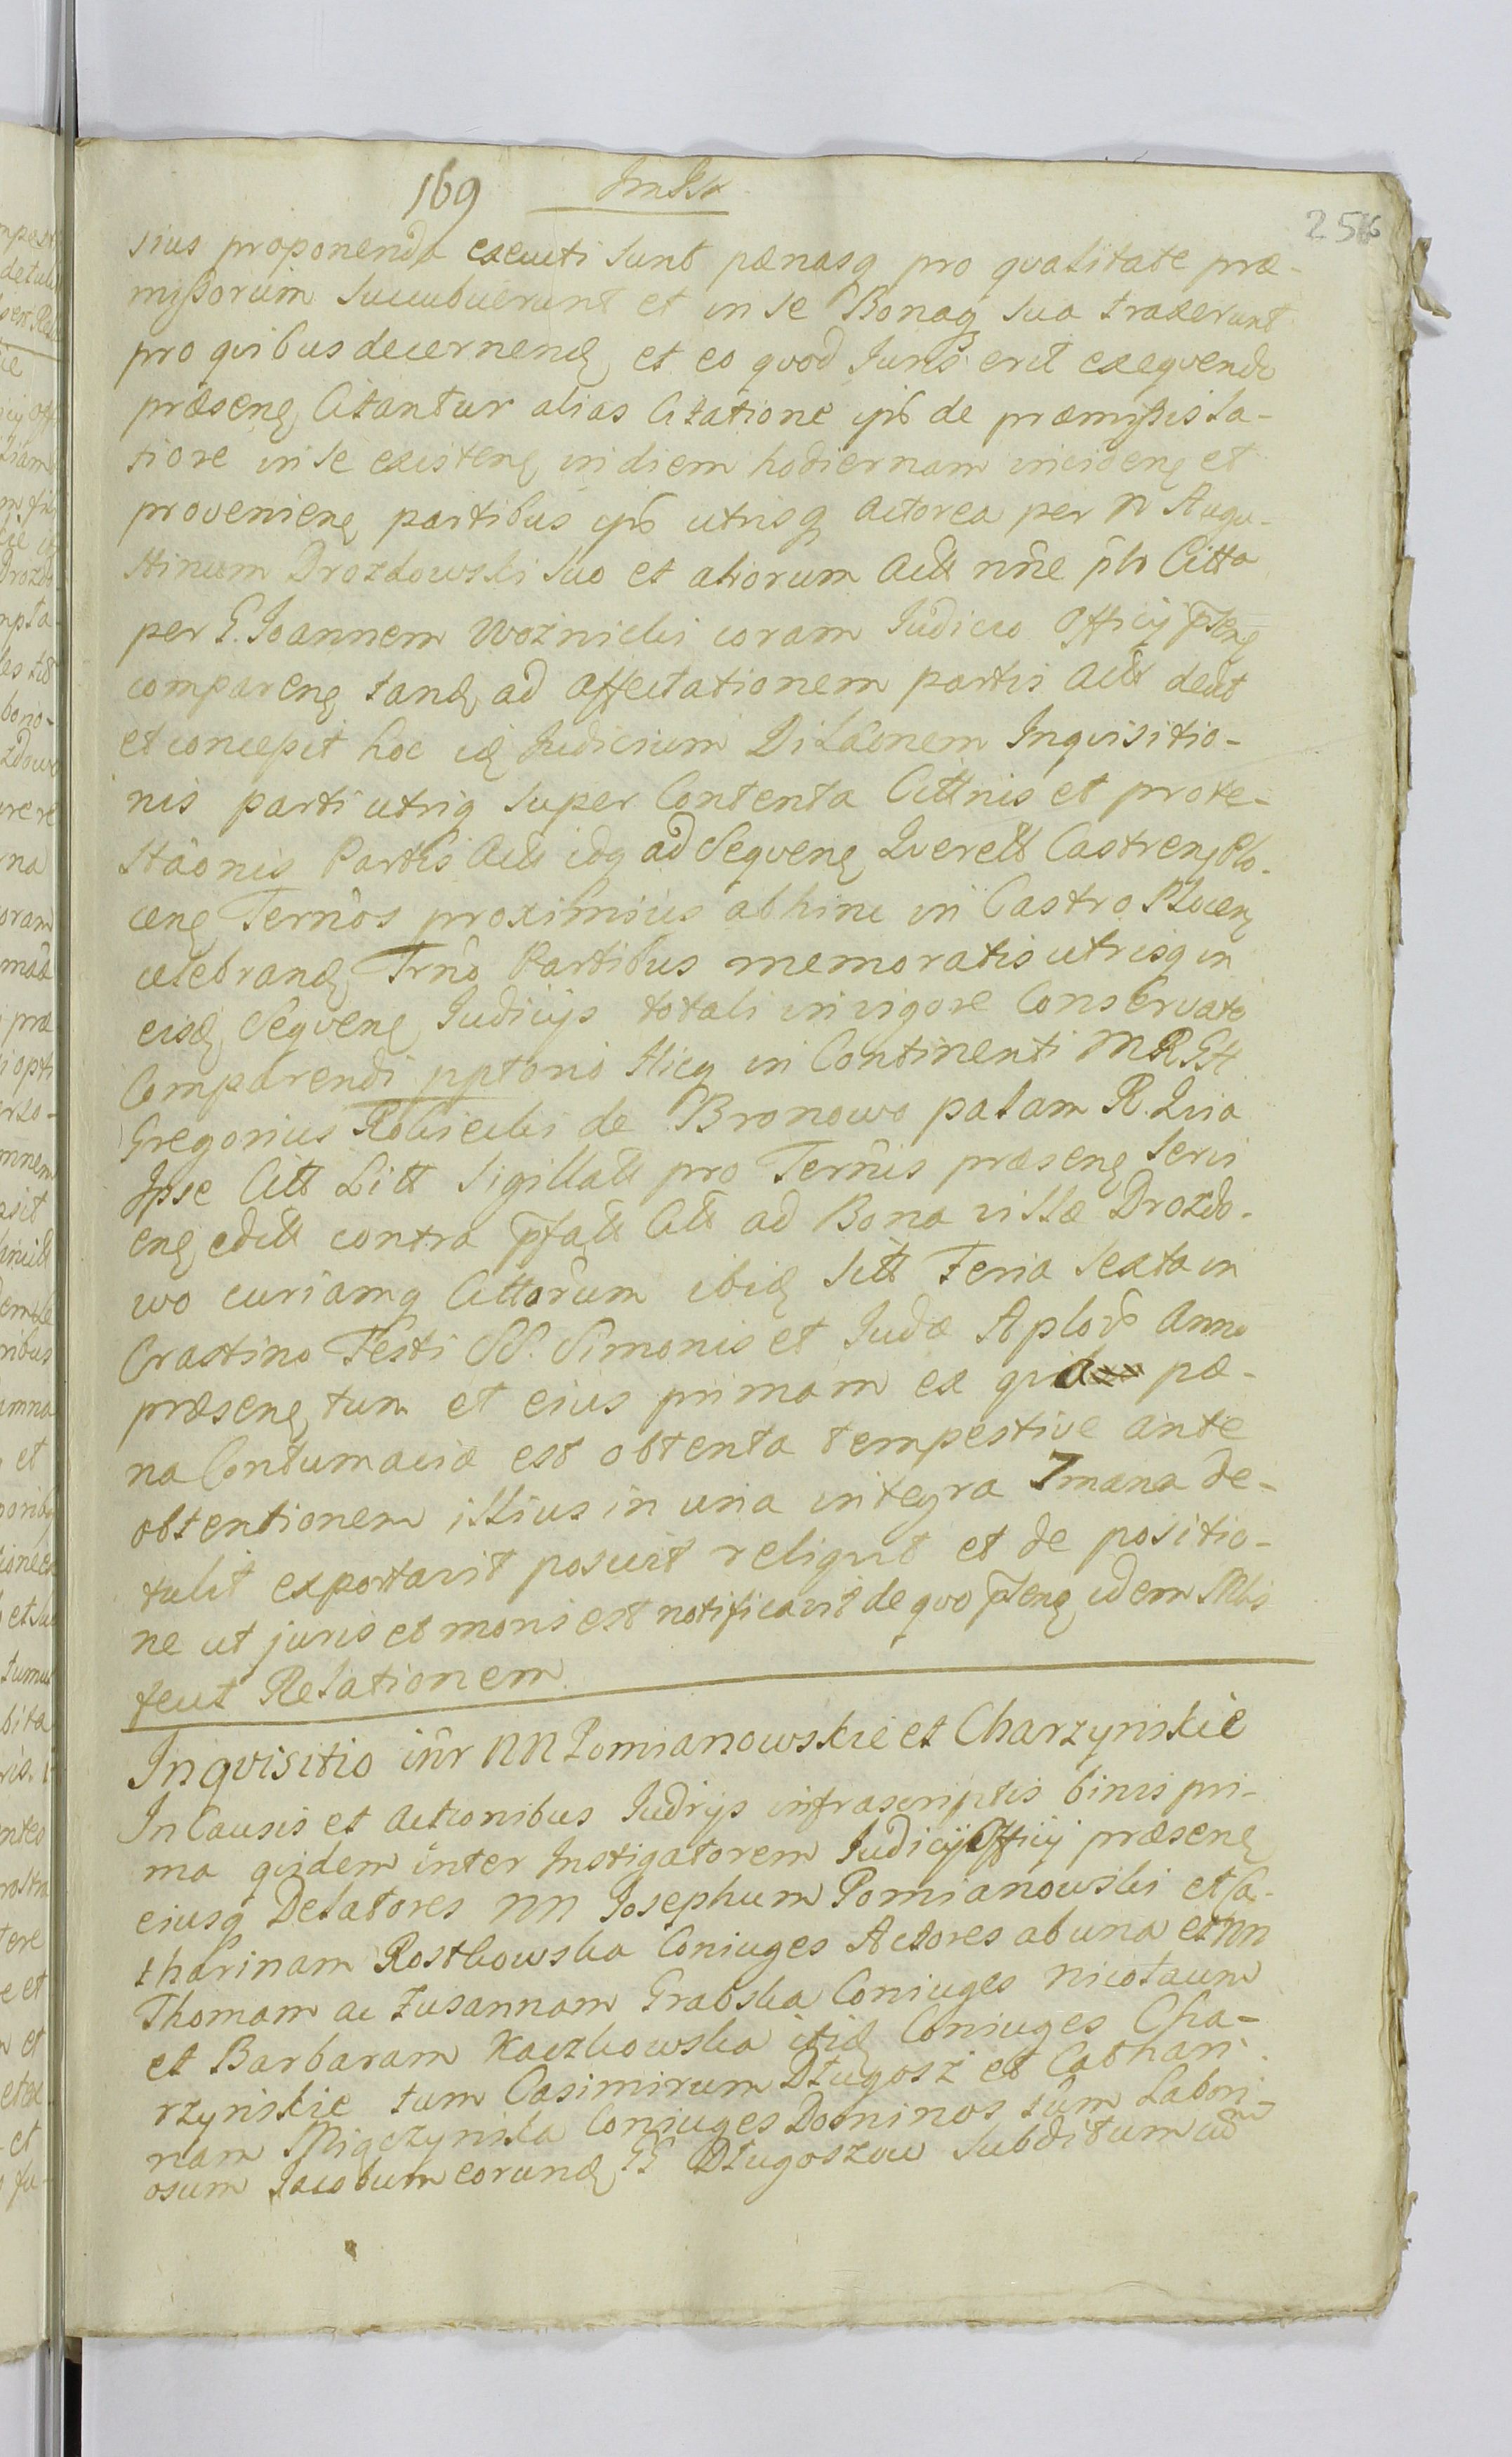 169
256
sius proponenda executi sunt pænasq pro qvalitate præ-
mißorum succubuerunt et in se Bonaq sua traxerunt
pro qvibus decernend et eo qvod Juris erit exeqvendo
præsene Citantur alias Citatione ipb de præmißis la-
tiore in se existene in diem hodiernam incidene et
proveniene partibus ipb utrisq Actorea per N Augu-
stinum Drozdowski suo et aliorum Actt nñe plo Citta
per G. Joannem Woźnicki coram Judicio Officij pseñe
comparene tand ad affectationem partis Actt dedit
et concepit hoc id Judicium Dilaonem Inqvisitio-
nis parti utriq super Contenta Cittnis et prote-
stâonis Partis Actt idq ad Seqvene Qverell Castreneplo-
cene Terños proximius abhinc in Castro Plocen
celebrand Trño Partibus memoratis utrisq in
eisd Seqvene Judicijs totali in vigore Conservato
Comparendi pptorio Hicq in Continenti MRGH
Gregorius Robicki de Bronowo palam R. Qvia
Ipse Citt Litt Sigillatt pro Terñis præsene servi
ene editt contra pfatt Citt ad Bona villæ Drozdo-
wo curiamq Cittorum ibid sitt Feria Sexta in
Crastino Festi SS. Simonis et Judæ Aplorb Anno
præsene tum et eius primam ex qva pæ-
na Contumaciæ est obtenta tempestive ante
obtentionem illius in una integra 7mana de-
tulit exportavit posuit reliqvit et de positio-
ne ut juris et moris est notificavit de qvo pseñe idem Mbis
fecit Relationem
Inqvisitio iñr NN Pomianowskie et Charzyńskie
In Causis et Actionibus Judrijs infrascriptis binis pri-
ma qvidem inter Instigatorem Judicij Officij præsene
eiusq Delatores NN Josephum Pomianowski et Ca-
tharinam Rostkowska Coniuges Actores ab una et NN
Thomam ac Zusannam Grabska Coniuges Nicolaum
et Barbaram Kaczkowska itid Coniuges Cha-
rzyńskie tum Casimirum Długosz et Cathari-
nam Mięczyńska Coniuges Dominos tum Labori-
osum Jacobum eorund GG Długoszow subditum ad